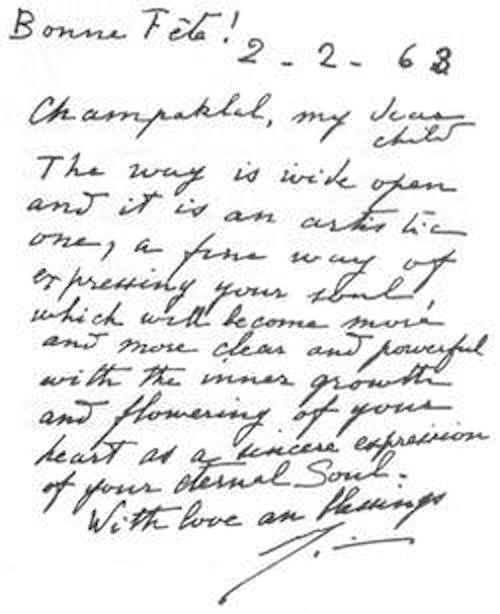 Bonne Fête!
2 - 2 - 63
Champaklal, my dear
child
The way is wide open
and it is an artistic
one, a fine way of
expressing your soul,
which will become more
and more clear and powerful
with the inner growth
and flowering of your
heart as a sincere expression
of your eternal Soul.
With love an blessings